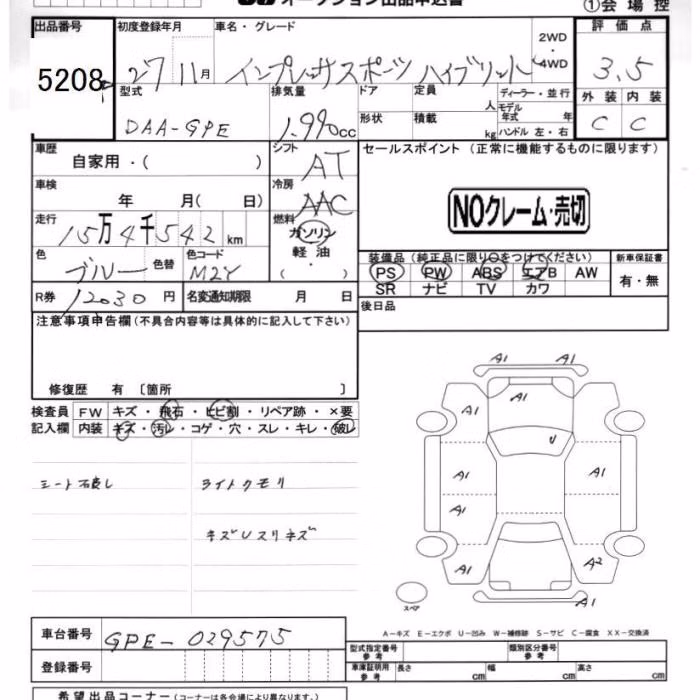 オークション出品申込書
①会場控
出品番号 5208
初度登録年月 27 11月
車名・グレード インプレッサスポーツ ハイブリット
2WD・4WD
評価点 3.5
型式 DAA-GPE
排気量 1.990cc
ドア
定員 人
ディーラー・並行
モデル年式 年
形状
積載 kg
ハンドル 左・右
外装 内装
C C
車歴 自家用・( )
シフト AT
セールスポイント (正常に機能するものに限ります)
車検 年 月( 日)
冷房 AAC
NOクレーム・売切
走行 15万4千542km
燃料 ガソリン 軽油
色 ブルー 色替
色コード M2Y
装備品 (純正品に限り○をつけてください)
新車保証書 有・無
PS PW ABS エアB AW
SR ナビ TV カワ
R券 12030円
名変通知期限 月 日
後日品
注意事項申告欄 (不具合内容等は具体的に記入して下さい)
修復歴 有 〔箇所 〕
検査員 FW キズ・飛石・ヒビ割・リペア跡・×要
記入欄 内装 キズ・汚レ・コゲ・穴・スレ・キレ・破レ
ライトクモリ
A1 A1
A1 A1
U
A1 A1
A1
A1 A2
A1 A1
スペア
A−キズ E−エクボ U−凹み W−補修跡 S−サビ C−腐食 XX−交換済
車台番号 GPE-029575
型式指定番号 参考
類別区分番号 参考
登録番号
車庫証明用 参考 長さ cm 幅 cm 高さ cm
希望出品コーナー (コーナーは各会場により異なります。)